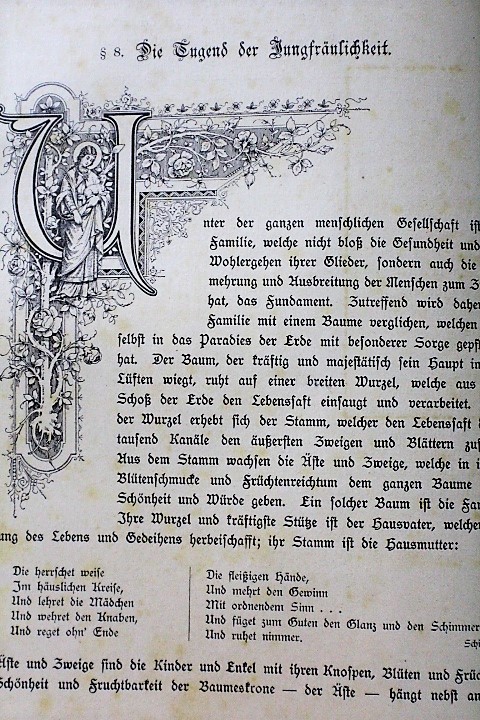 § 8. Die Tugend der Jungfräulichkeit.
Unter der ganzen menschlichen Gesellschaft ist
Familie, welche nicht bloß die Gesundheit und
Wohlergehen ihrer Glieder, sondern auch die
mehrung und Ausbreitung der Menschen zum Z
hat, das Fundament. Zutreffend wird daher
Familie mit einem Baume verglichen, welchen
selbst in das Paradies der Erde mit besonderer Sorge gepf
hat. Der Baum, der kräftig und majestätisch sein Haupt in
Lüften wiegt, ruht auf einer breiten Wurzel, welche aus
Schoß der Erde den Lebenssaft einsaugt und verarbeitet.
der Wurzel erhebt sich der Stamm, welcher den Lebenssaft
tausend Kanäle den äußersten Zweigen und Blättern zu
Aus dem Stamm wachsen die Äste und Zweige, welche in i
Blütenschmucke und Früchtenreichtum dem ganzen Baume
Schönheit und Würde geben. Ein solcher Baum ist die Fam
Ihre Wurzel und kräftigste Stütze ist der Hausvater, welcher
ung des Lebens und Gedeihens herbeischafft; ihr Stamm ist die Hausmutter:
Die herrschet weise
Im häuslichen Kreise,
Und lehret die Mädchen
Und wehret den Knaben,
Und reget ohn' Ende
Die fleißigen Hände,
Und mehrt den Gewinn
Mit ordnendem Sinn . . .
Und füget zum Guten den Glanz und den Schimmer
Und ruhet nimmer.
Schi
Äste und Zweige sind die Kinder und Enkel mit ihren Knospen, Blüten und Früc
Schönheit und Fruchtbarkeit der Baumeskrone — der Äste — hängt nebst an